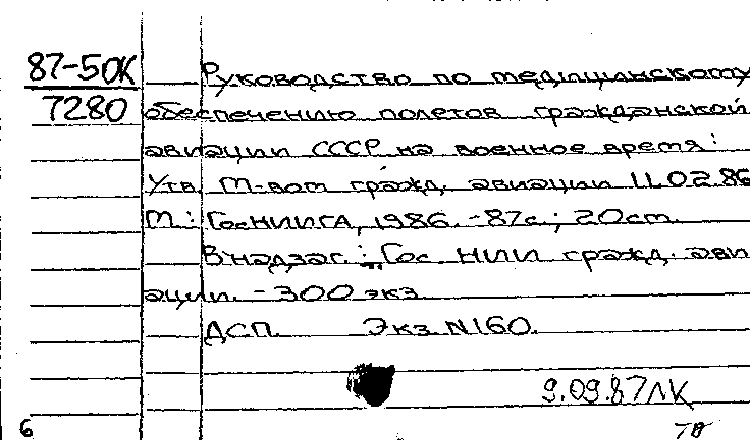 87-50К
7280
Руководство по медицинскому
обеспечению полетов гражданской
авиации СССР на военное время:
Утв. М-вом гражд. авиации 11.02.86
М.: ГосНИИГА, 1986. -87с.; 20см.
В надзаг.: Гос. НИИ гражд. ави
ации. - 300 экз.
ДСП. Экз N160.
9.09.87ЛК
6